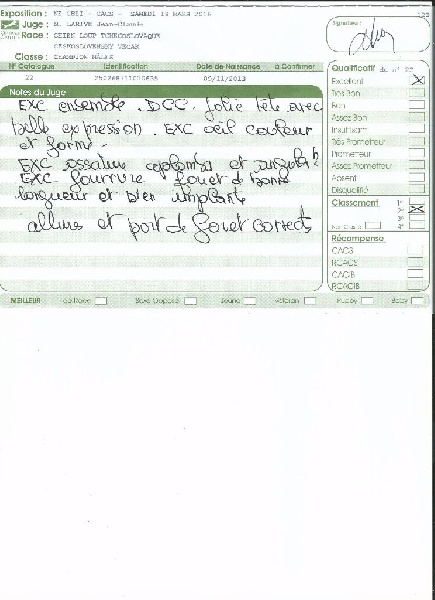 Exposition :
CACS - SAMEDI 19 MARS 2016
Juge : M. LARIVE Jean-Claude
Race : CHIEN LOUP TCHECOSLOVAQUE
CESKOSLOVENSKY VLCAK
Classe : CHAMPION MALES
Signature :
N° Catalogue Identification Date de Naissance à Confirmer
22 09/11/2013
Notes du Juge
EXC ensemble. DCC. Jolie tête avec
belle expression. EXC œil couleur
et forme.
EXC ossature aplombs et
EXC fourrure fouet de bonne
longueur et bien implanté
allure et port de fouet corrects
Qualificatif du n° 22
Excellent
Très Bon
Bon
Assez Bon
Insuffisant
Très Prometteur
Prometteur
Assez Prometteur
Absent
Disqualifié
Classement 1er
2e
3e
Non Classé 4e
Récompense
CACS
RCACS
CACIB
RCACIB
MEILLEUR de Race Sexe Opposé Jeune Vétéran Puppy Baby